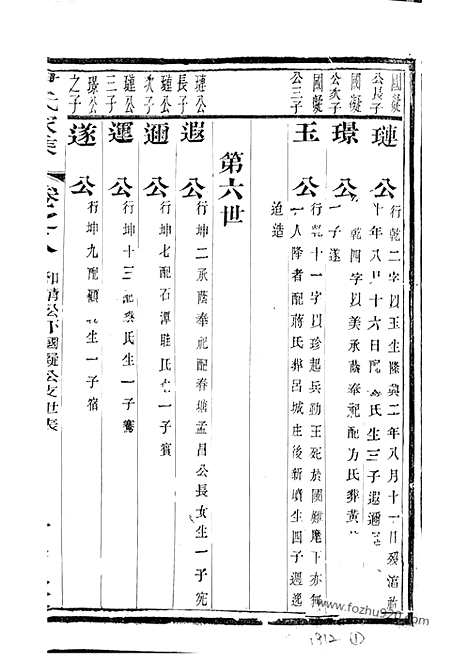 國凝公長子
璉公
行乾二字以玉生隆興二年八月十一日歿
年八月十六日配 氏生三子遐邇
國凝公次子
璟公
行乾四字以美承蔭奉祀配方氏葬黃
一子遂
國凝公三子
玉公
行乾十一字以珍起兵勤王死於國難麾下亦無
一人降者配蔣氏葬呂城庄後新墳生四子週逸
迫造
第六世
璉公長子
遐公
行坤二承蔭奉祀配春塘孟昌公長女生一子宪
璉公次子
邇公
行坤七配石潭駐氏生一子賓
璉公三子
運公
行坤十三配蔡氏生一子騫
璟公之子
遂公
行坤九配顧氏生一子宿
氏家乘
卷之八
和靖公下國凝公支世表
www.fozhu920.com
1912 ①